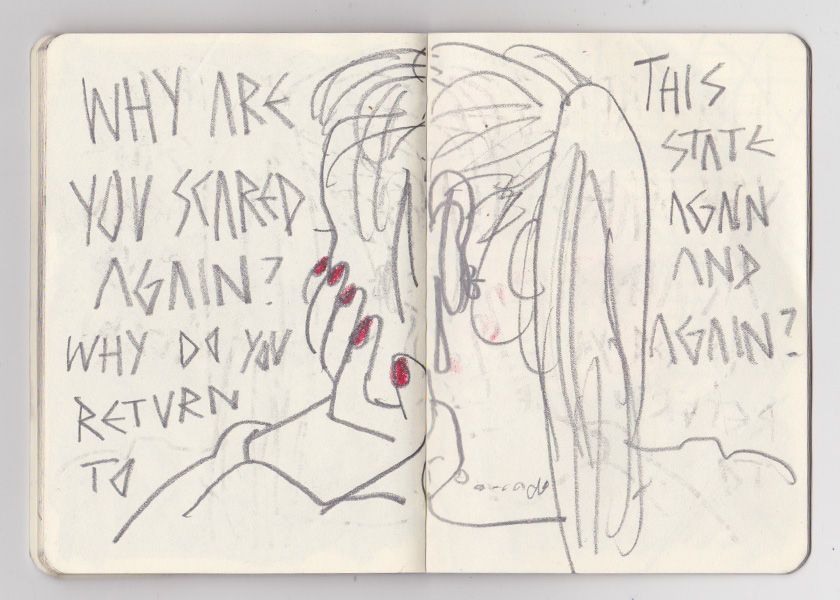 WHY ARE
YOU SCARED
AGAIN?
WHY DO YOU
RETURN
TO
THIS
STATE
AGAIN
AND
AGAIN?